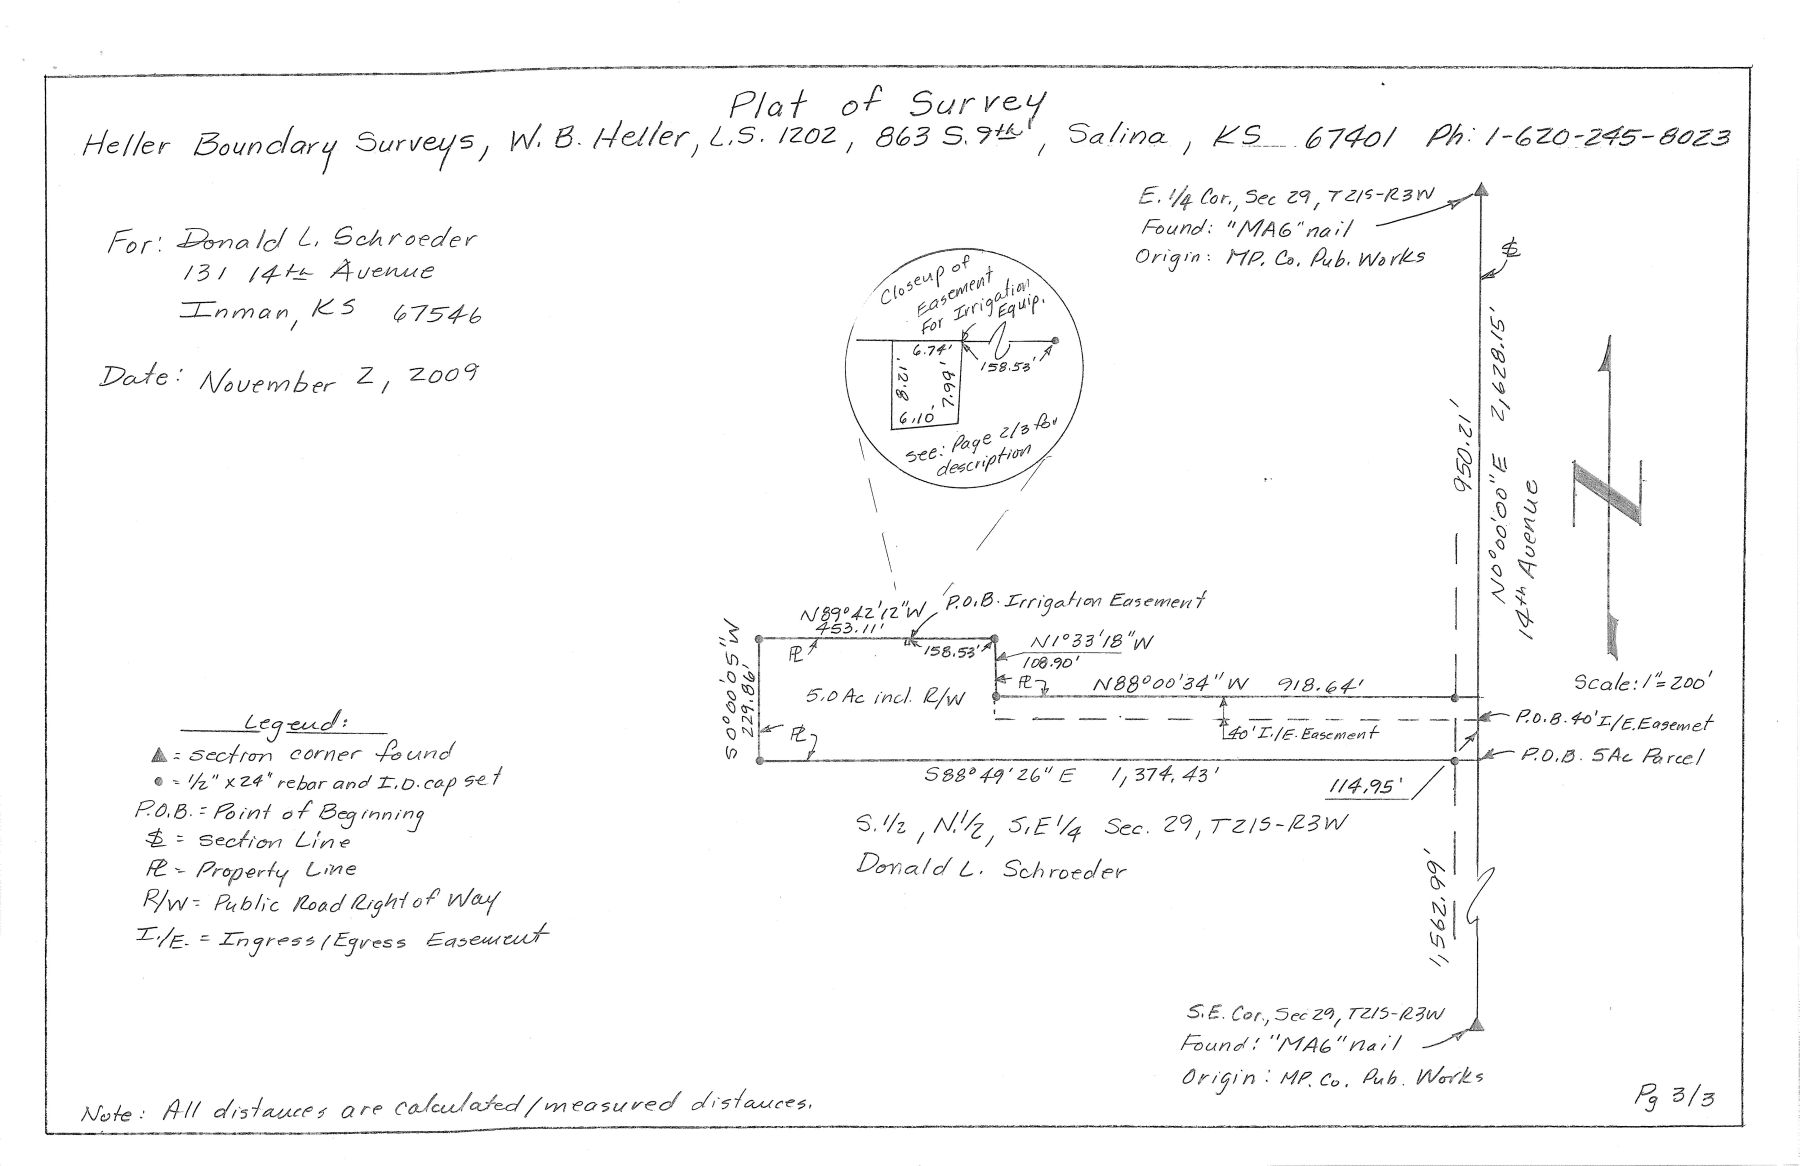 Plat of Survey
Heller Boundary Surveys, W. B. Heller, L.S. 1202, 863 S. 9th, Salina, KS 67401 Ph: 1-620-245-8023
For: Donald L. Schroeder
131 14th Avenue
Inman, KS 67546
Date: November 2, 2009
E. 1/4 Cor., Sec 29, T21S-R3W
Found: "MAG" nail
Origin: MP. Co. Pub. Works
Closeup of
Easement
For Irrigation
Equip.
6.74'
158.53'
8.21'
7.99'
6.10'
see: Page 2/3 for
description
950.21'
N0°00'00"E 2,628.15'
14th Avenue
Scale: 1"=200'
N89°42'12"W
453.11'
P.O.B. Irrigation Easement
158.53'
N1°33'18"W
108.90'
S0°00'05"W
229.86'
PL
5.0 Ac incl. R/W
PL
N88°00'34"W 918.64'
PL
40' I./E. Easement
P.O.B. 40' I/E. Easemet
P.O.B. 5Ac Parcel
S88°49'26"E 1,374.43'
114.95'
S.1/2, N.1/2, S.E 1/4 Sec. 29, T21S-R3W
Donald L. Schroeder
1,562.99'
Legend:
▲ = section corner found
● = 1/2" x 24" rebar and I.D. cap set
P.O.B. = Point of Beginning
SL = Section Line
PL = Property Line
R/W = Public Road Right of Way
I./E. = Ingress/Egress Easement
S.E. Cor., Sec 29, T21S-R3W
Found: "MAG" nail
Origin: MP. Co. Pub. Works
Note: All distances are calculated/measured distances.
Pg 3/3